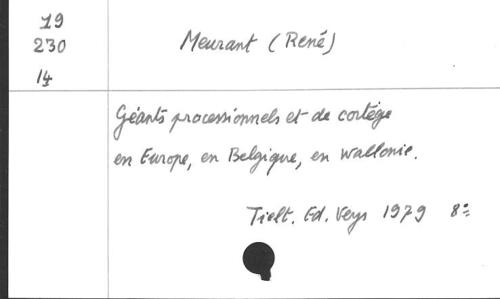 19
230
14
Meurant (René)
Géants processionnels et de cortège
en Europe, en Belgique, en Wallonie.
Tielt. Ed. Veys 1979 8°